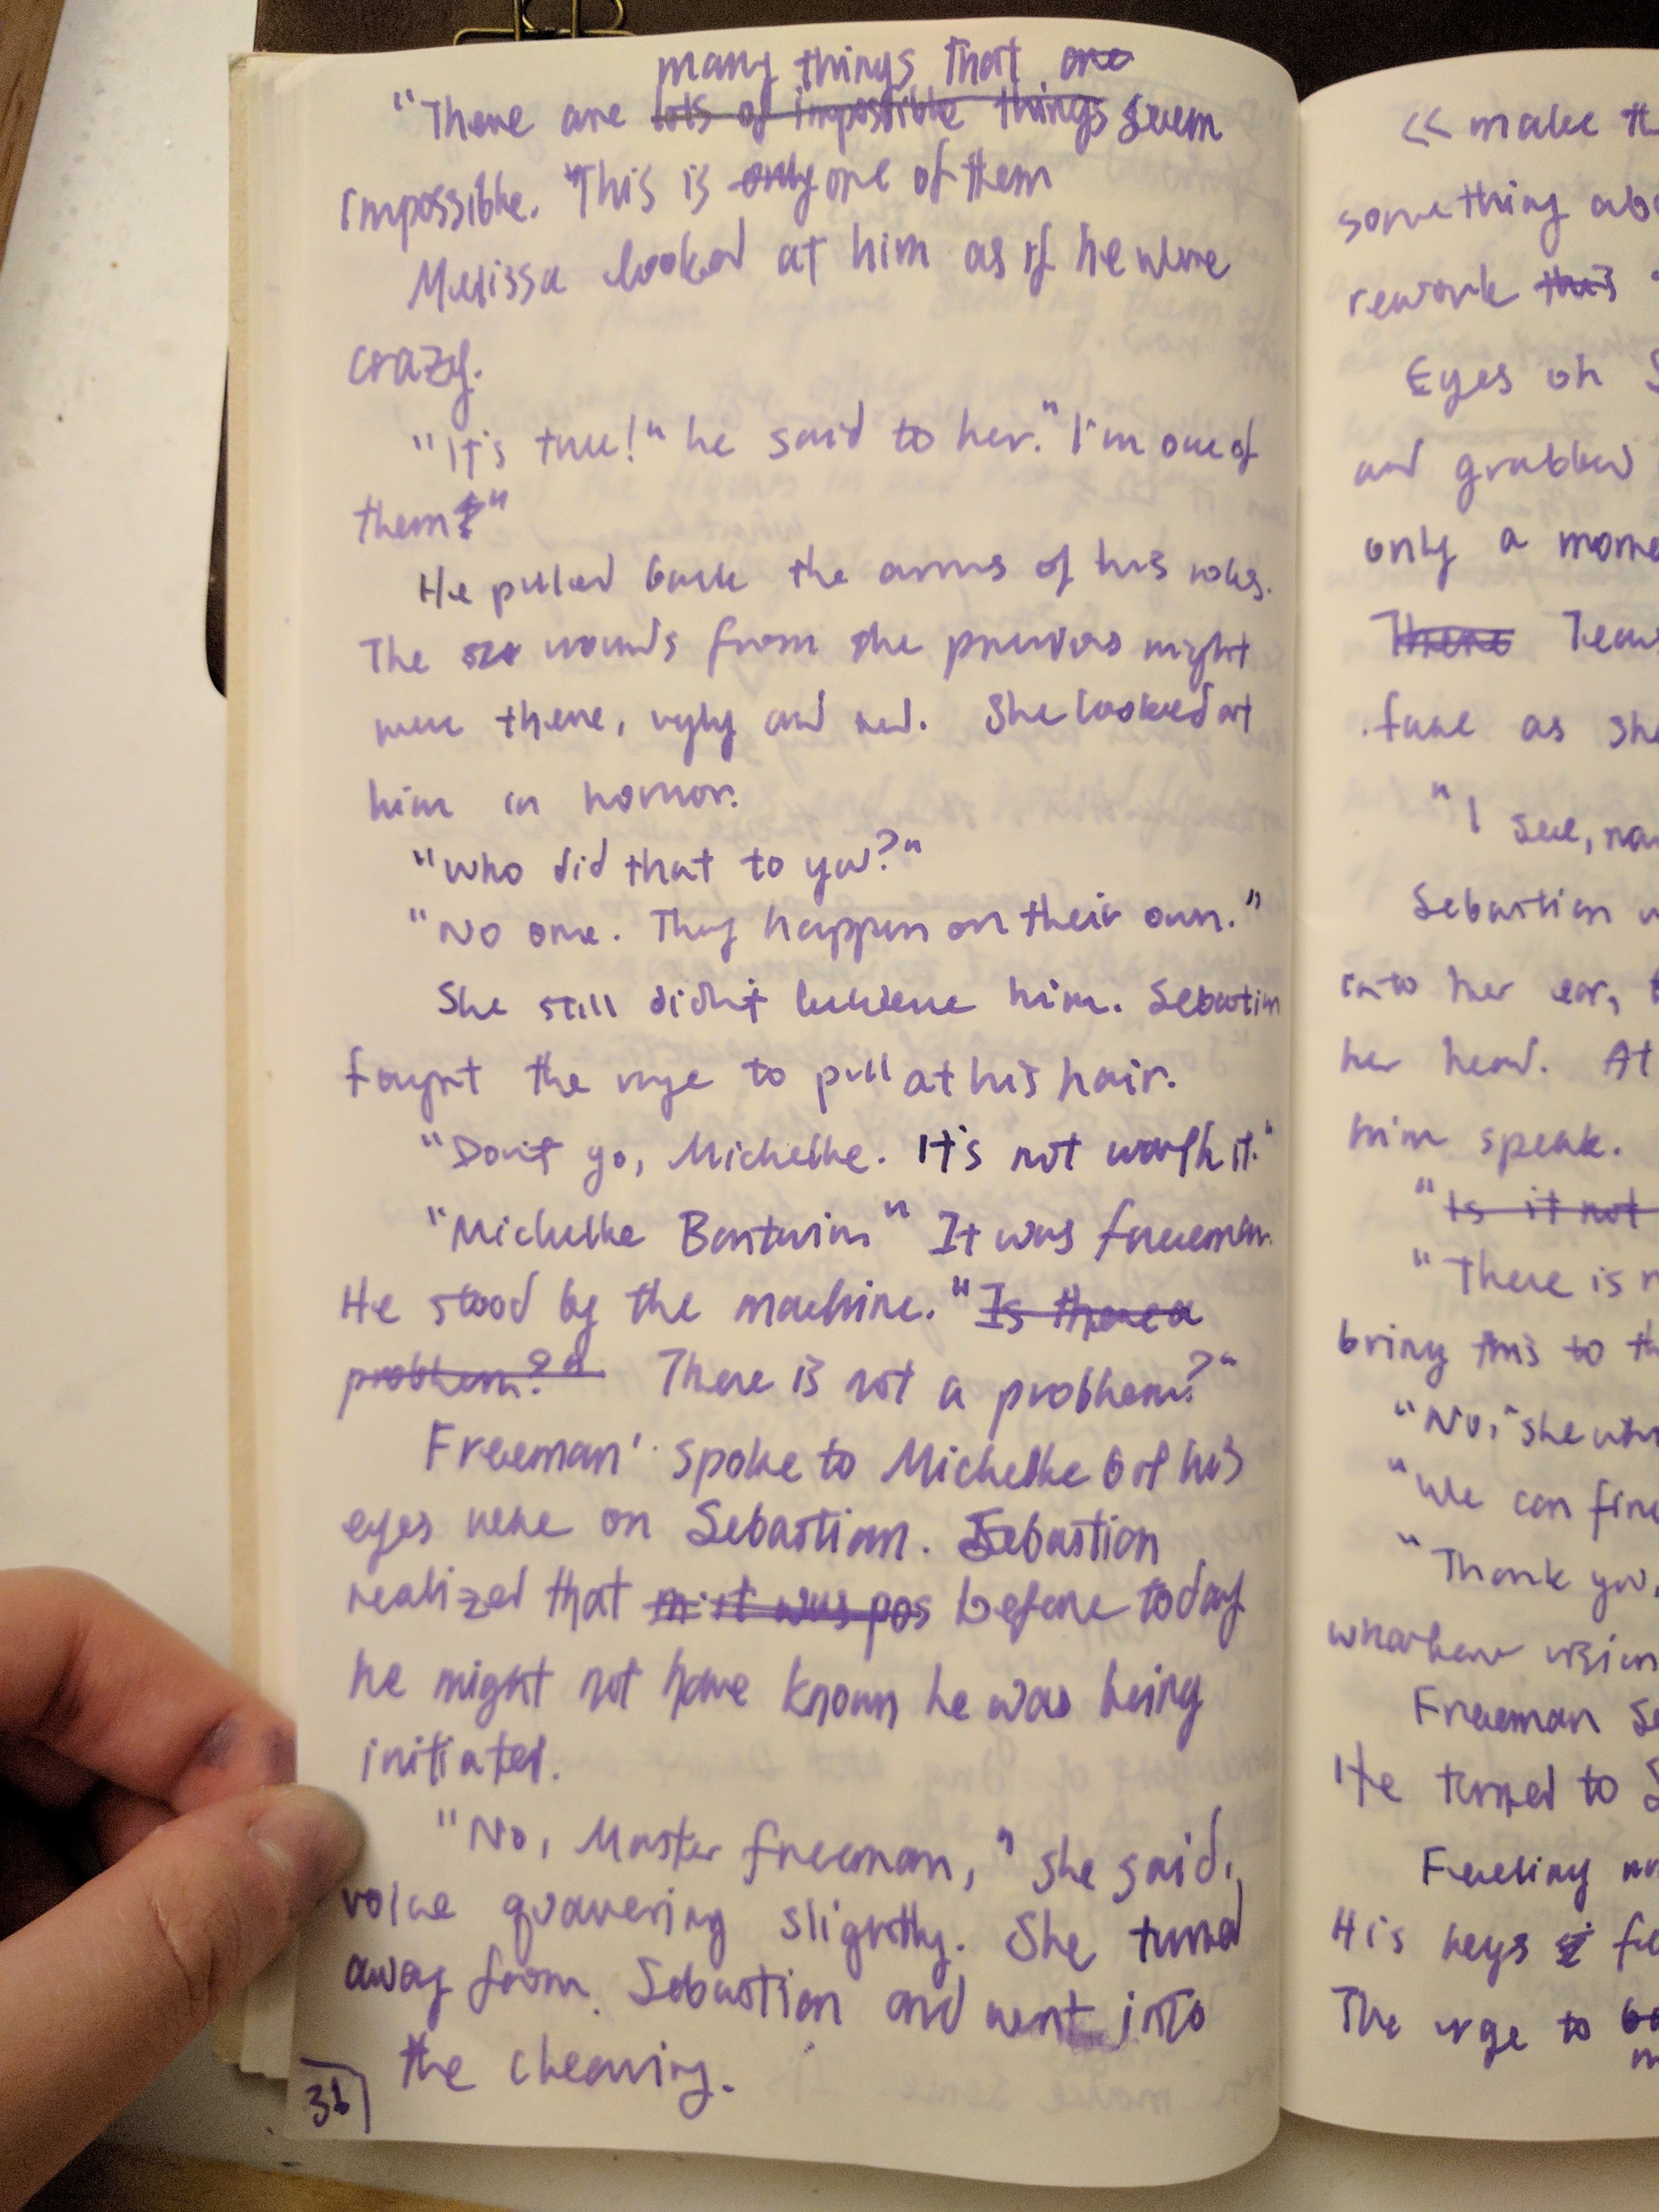 many things that are
"There are lots of impossible things seem
impossible. "This is only one of them
Melissa looked at him as if he were
crazy.
"It's true!" he said to her. "I'm one of
them!"
He pulled back the arms of his robes.
The wounds from the previous night
were there, ugly and red. She looked at
him in horror.
"Who did that to you?"
"No one. They happen on their own."
She still didn't believe him. Sebastian
fought the urge to pull at his hair.
"Don't go, Michelle. It's not worth it."
"Michelle" It was freeman.
He stood by the machine. "Is there a
problem?" There is not a problem?"
Freeman spoke to Michelle but his
eyes were on Sebastian. Sebastian
realized that it was pos before today
he might not have known he was being
initiated.
"No, Master freeman," she said,
voice quavering slightly. She turned
away from Sebastian and went into
the clearing.
36
<< make th
something abo
rework this
Eyes on S
and grabbed
only a mome
There Tears
face as she
"I see, na
Sebastian w
into her ear, t
her head. At
him speak.
"Is it not
"There is n
bring this to th
"No," she whi
"We can fin
"Thank you,
whatever vision
Freeman se
He turned to S
Feeling
His keys fe
The urge to